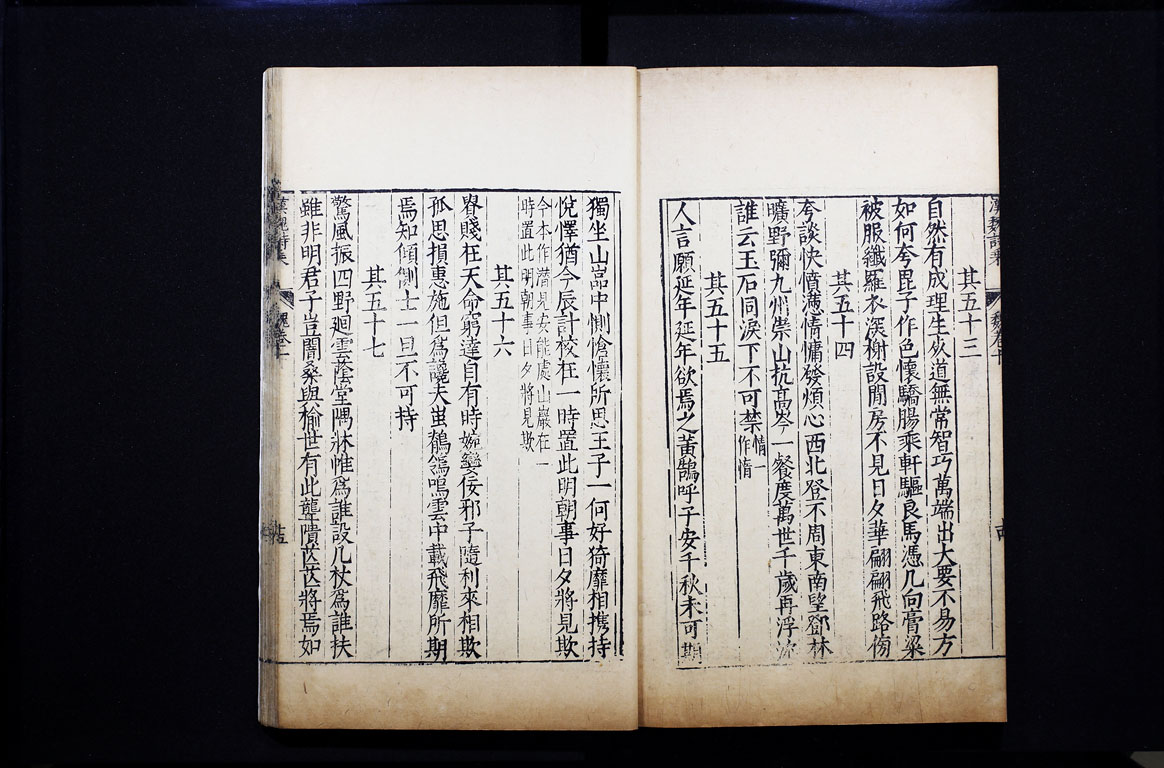 漢魏詩乘
魏卷十
其五十三
自然有成理生死道無常智巧萬端出大要不易方
如何夸毘子作色懷驕腸乘軒驅良馬憑几向膏粱
被服纖羅衣深榭設閒房不見日夕華翩翩飛路傍
其五十四
夸談快憤懣情慵發煩心西北登不周東南望鄧林
曠野彌九州崇山抗高岑一餐度萬世千歲再浮沉
誰云玉石同淚下不可禁情一作惰
其五十五
人言願延年延年欲焉之黃鵠呼子安千秋未可期
獨坐山嵓中惻愴懷所思王子一何好猗靡相携持
悅懌猶今辰計校在一時置此明朝事日夕將見欺
今本作潜見安能處山巖在一
時置此明朝事日夕將見欺
其五十六
貴賤在天命窮達自有時婉孌佞邪子隨利來相欺
孤思損惠施但為讒夫蚩鶺鴒鳴雲中載飛靡所期
焉知傾側士一旦不可持
其五十七
驚風振四野廻雲蔭堂隅牀帷為誰設几杖為誰扶
雖非明君子豈闇桑與榆世有此聾聵茫茫將焉如
漢魏詩乘
魏卷十